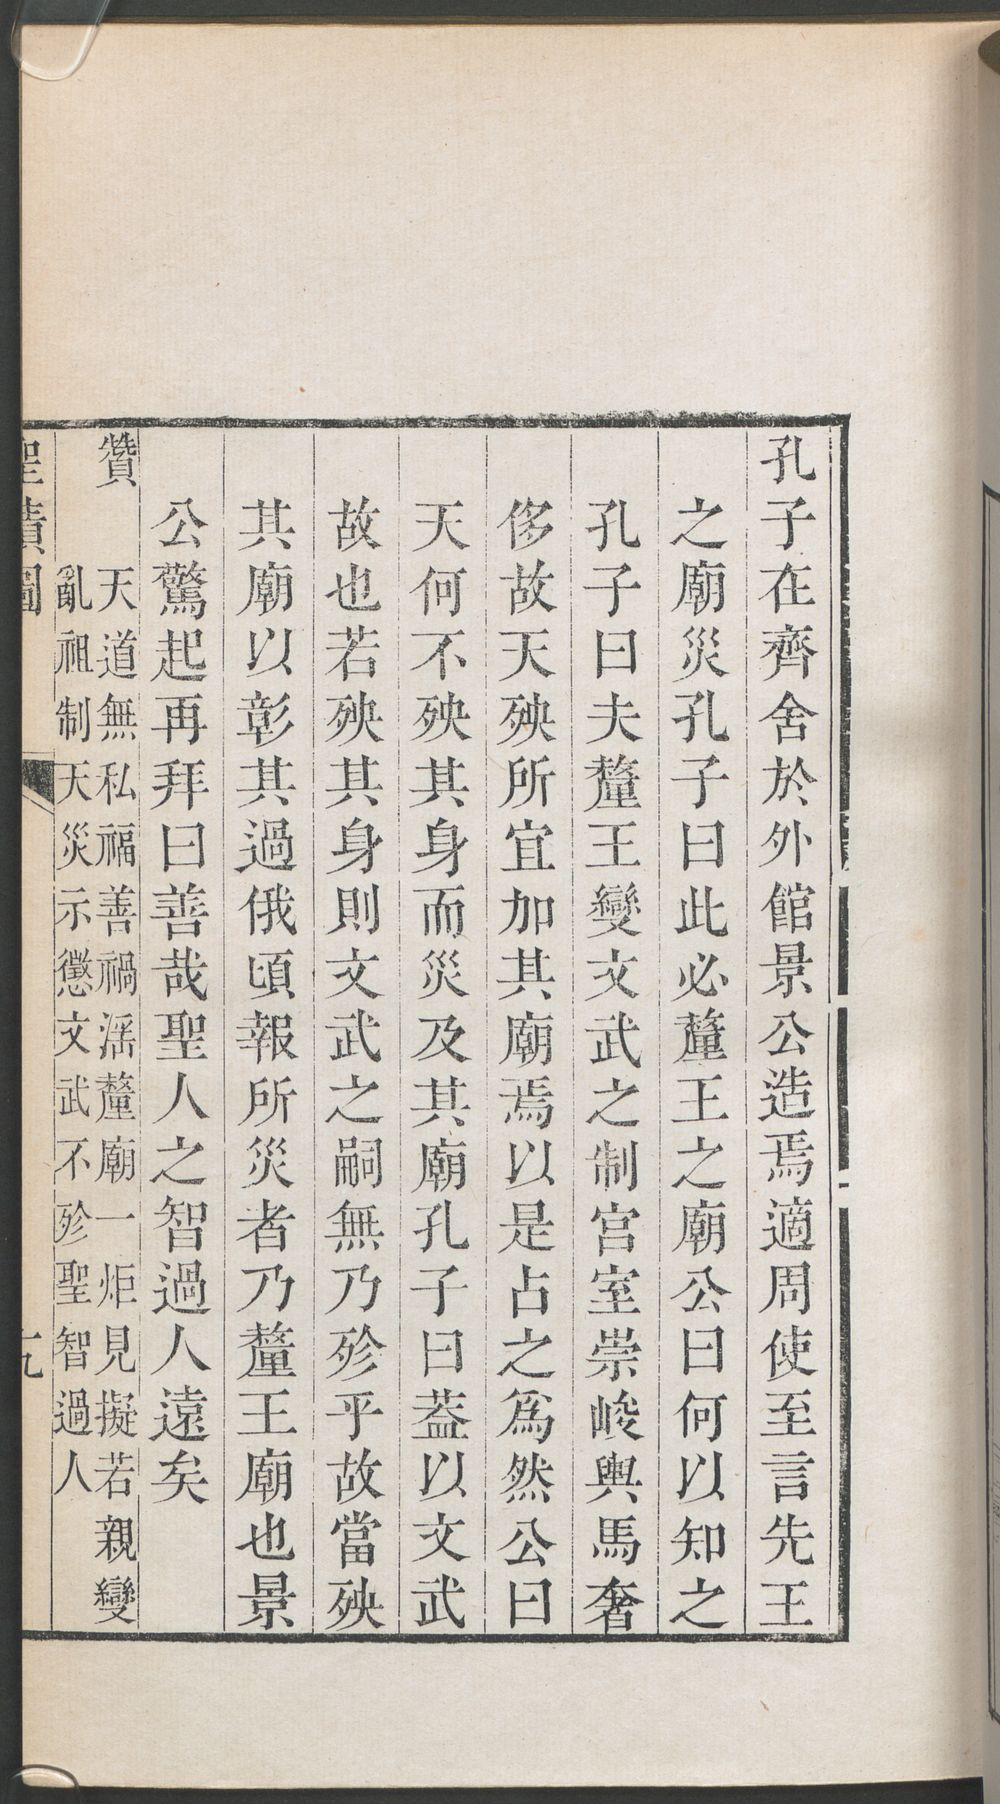 孔子在齊舍於外館景公造焉適周使至言先王
之廟災孔子曰此必釐王之廟公曰何以知之
孔子曰夫釐王變文武之制宮室崇峻輿馬奢
侈故天殃所宜加其廟焉以是占之為然公曰
天何不殃其身而災及其廟孔子曰蓋以文武
故也若殃其身則文武之嗣無乃殄乎故當殃
其廟以彰其過俄頃報所災者乃釐王廟也景
公驚起再拜曰善哉聖人之智過人遠矣
贊
天道無私福善禍淫釐廟一炬見擬若親變
亂祖制天災示懲文武不殄聖智過人
聖蹟圖